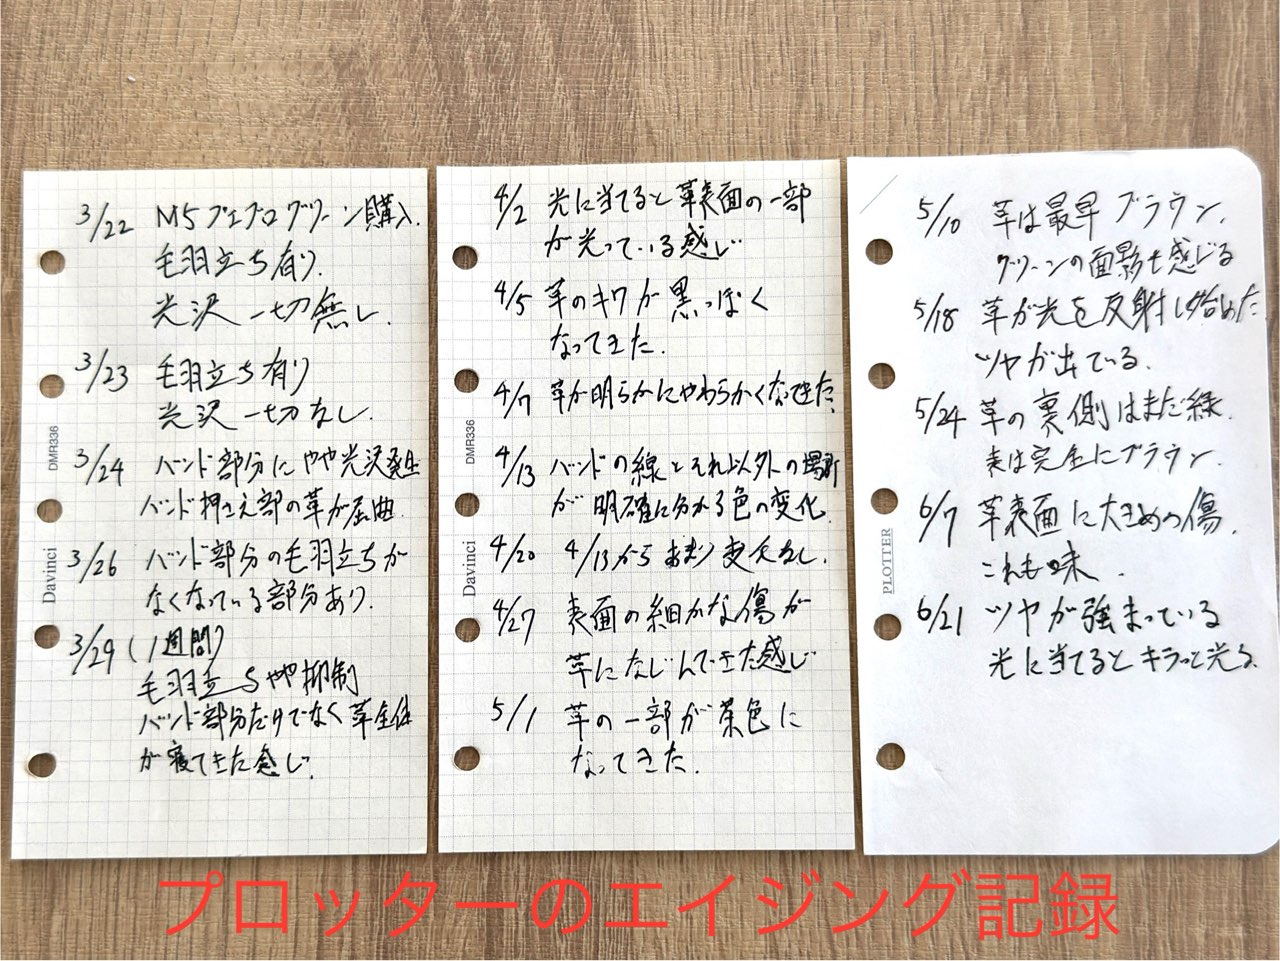 3/22 M5プエブログリーン購入.
毛羽立ち有り.
光沢一切無し.
3/23 毛羽立ち有り
光沢一切なし.
3/24 バンド部分にやや光沢発生
バンド押さえ部の革が屈曲.
3/26 バンド部分の毛羽立ちが
なくなっている部分あり.
3/29 (1週間)
毛羽立ちやや抑制
バンド部分だけでなく革全体
が寝てきた感じ.
DMR336
Davinci
4/2 光に当てると革表面の一部
が光っている感じ
4/5 革のキワが黒っぽく
なってきた.
4/7 革が明らかにやわらかくなってきた.
4/13 バンドの線とそれ以外の場所
が明確に分かる色の変化.
4/20 4/13からあまり変化なし.
4/27 表面の細かな傷が
革になじんできた感じ
5/1 革の一部が茶色に
なってきた.
DMR336
Davinci
5/10 革は最早ブラウン.
グリーンの面影も感じる
5/18 革が光を反射し始めた.
ツヤが出ている.
5/24 革の裏側はまだ緑.
表は完全にブラウン.
6/7 革表面に大きめの傷.
これも味.
6/21 ツヤが強まっている
光に当てるとキラっと光る.
PLOTTER
プロッターのエイジング記録